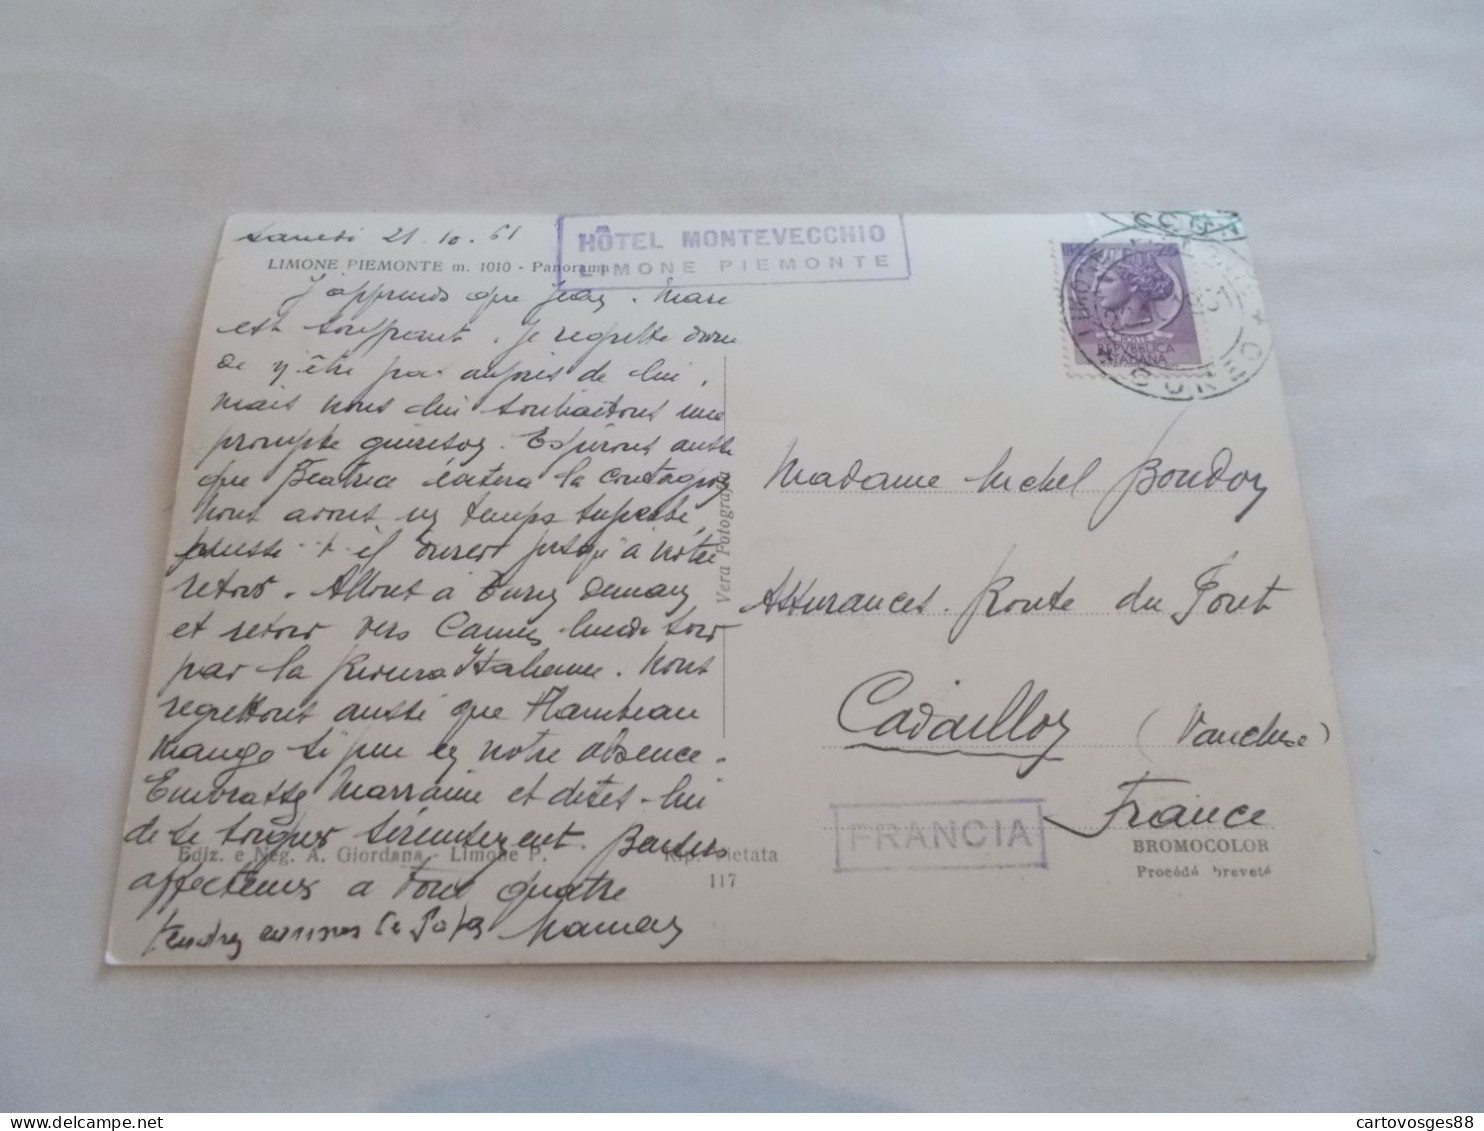 samedi 21.10.61
HÔTEL MONTEVECCHIO
LIMONE PIEMONTE
LIMONE PIEMONTE m. 1010 - Panorama
J'apprends que Jean. Marc
est souffrant. Je regrette
de n'être pas auprès de lui,
mais nous lui souhaitons une
prompte guérison. Espérons aussi
que Béatrice évitera la contagion
Nous avons un temps superbe,
il jusqu'à notre
retour. Allons à Turin demain
et retour vers Cannes lundi soir
par la Riviera Italienne. Nous
regrettons aussi que Flambeau
mange si peu en notre absence.
Embrassez Marraine et dites-lui
de se soigner sérieusement. Baisers
affectueux à tous quatre
Maman
tendres de Papa
Vera Fotografia
Ediz. e Neg. A. Giordana - Limone P.
Rip. Vietata
117
25
REPVBBLICA
ITALIANA
CUNEO
Madame Michel Boudon
Assurances. Route du Pont
Cavaillon (Vaucluse)
France
FRANCIA
BROMOCOLOR
Procédé breveté
cartovosges88